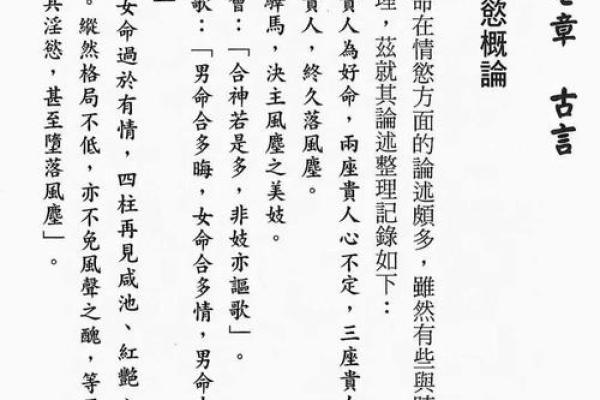 章 古言
慾概論
命在情慾方面的論述頗多，雖然有些與時
理，茲就其論述整理記錄如下：
貴人為好命，兩座貴人心不定，三座貴人
貴人，終久落風塵。
驛馬，決主風塵之美妓。
曾：「合神若是多，非妓亦謳歌」。
歌：「男命合多晦，女命合多情，男命
女命過於有情，四柱再見咸池、紅艷
。縱然格局不低，亦不免風聲之醜，等
其淫慾，甚至墮落風塵」。